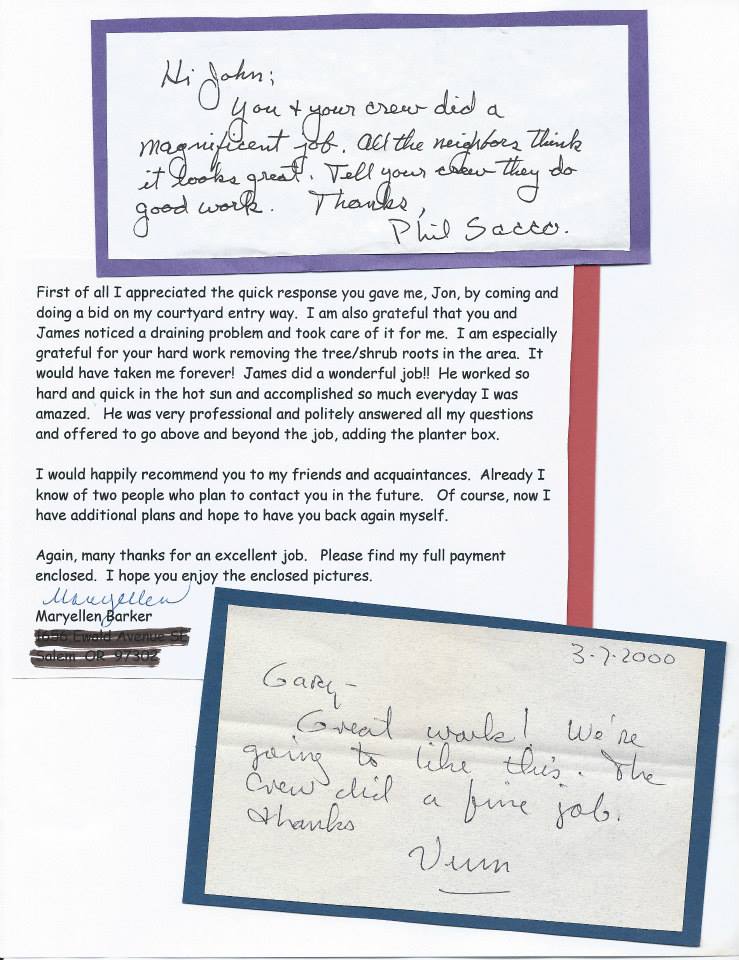 Hi John;
You + your crew did a
magnificent job. All the neighbors think
it looks great. Tell your crew they do
good work. Thanks,
Phil Sacco.
First of all I appreciated the quick response you gave me, Jon, by coming and
doing a bid on my courtyard entry way. I am also grateful that you and
James noticed a draining problem and took care of it for me. I am especially
grateful for your hard work removing the tree/shrub roots in the area. It
would have taken me forever! James did a wonderful job!! He worked so
hard and quick in the hot sun and accomplished so much everyday I was
amazed. He was very professional and politely answered all my questions
and offered to go above and beyond the job, adding the planter box.
I would happily recommend you to my friends and acquaintances. Already I
know of two people who plan to contact you in the future. Of course, now I
have additional plans and hope to have you back again myself.
Again, many thanks for an excellent job. Please find my full payment
enclosed. I hope you enjoy the enclosed pictures.
Maryellen
Maryellen Barker
3-7-2000
Gary-
Great work! We're
going to like this. The
crew did a fine job.
thanks
Vern